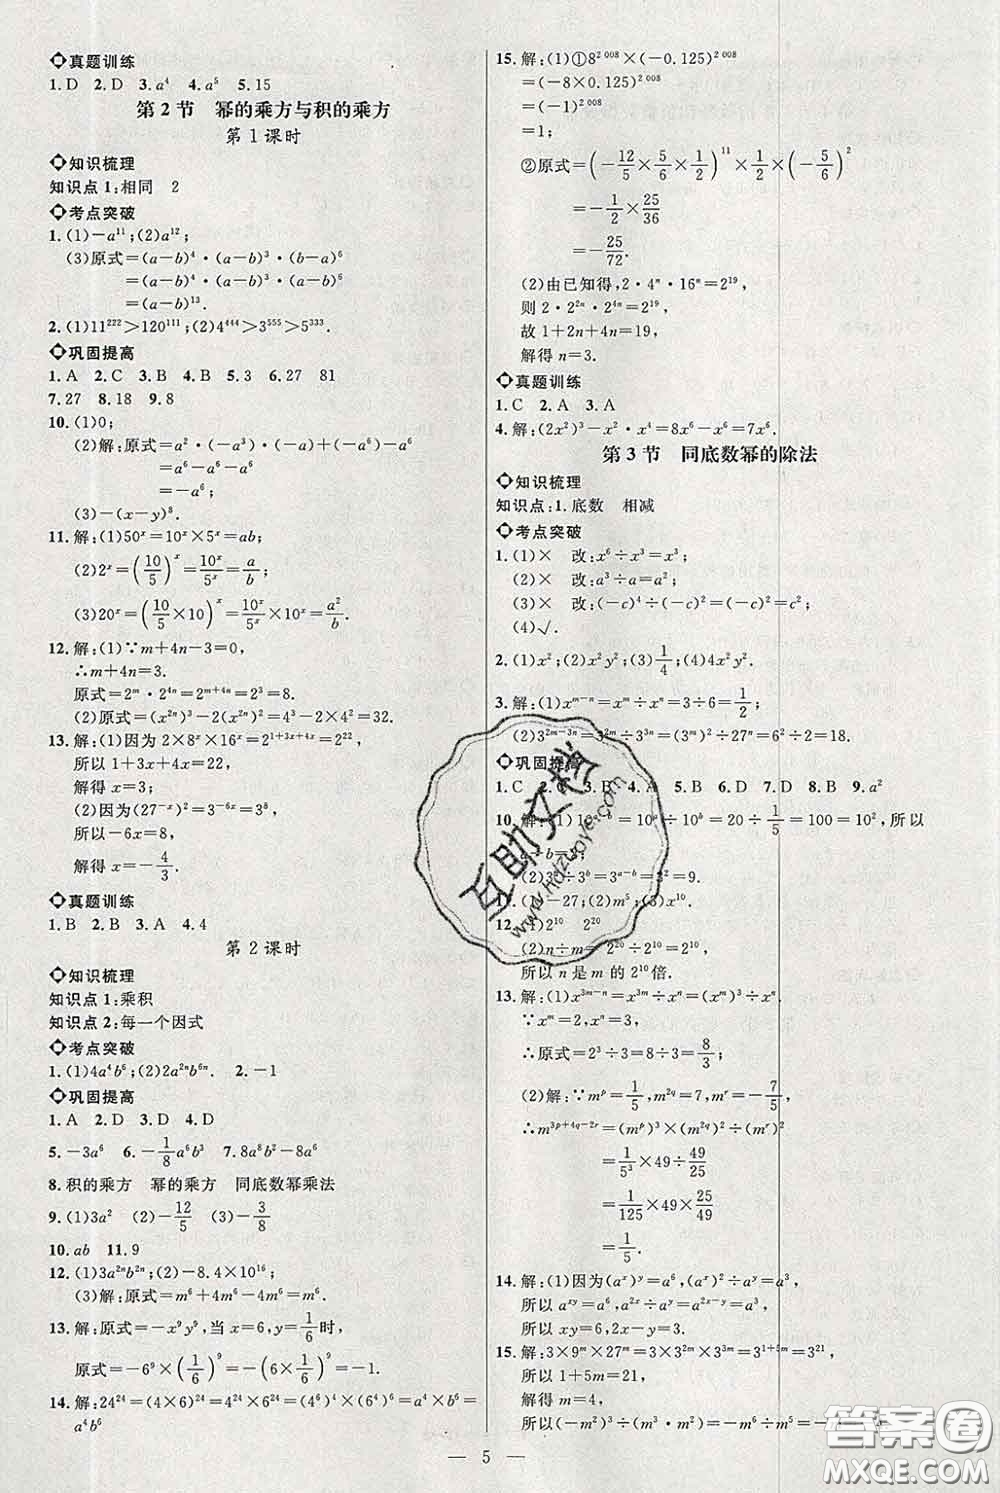 真题训练
1.D 2.D 3.a⁴ 4.a⁵ 5.15
第2节 幂的乘方与积的乘方
第1课时
知识梳理
知识点1:相同 2
考点突破
1.(1)-a¹¹;(2)a¹²;
(3)原式=(a-b)⁴·(a-b)³·(b-a)⁶
=(a-b)⁴·(a-b)³·(a-b)⁶
=(a-b)¹³.
2.(1)11²²²>120¹¹¹;(2)4⁴⁴⁴>3⁵⁵⁵>5³³³.
巩固提高
1.A 2.C 3.B 4.B 5.3 6.27 81
7.27 8.18 9.8
10.(1)0;
(2)解:原式=a²·(-a³)·(-a)+(-a⁶)-a⁶
=a⁶-a⁶-a⁶
=-a⁶;
(3)-(x-y)⁸.
11.解:(1)50ˣ=10ˣ×5ˣ=ab;
(2)2ˣ=(10/5)ˣ=10ˣ/5ˣ=a/b;
(3)20ˣ=(10/5×10)ˣ=10ˣ/5ˣ×10ˣ=a²/b.
12.解:(1)∵m+4n-3=0,
∴m+4n=3.
原式=2ᵐ·2⁴ⁿ=2ᵐ⁺⁴ⁿ=2³=8.
(2)原式=(x²ⁿ)³-2(x²ⁿ)²=4³-2×4²=32.
13.解:(1)因为2×8ˣ×16ˣ=2¹⁺³ˣ⁺⁴ˣ=2²²,
所以1+3x+4x=22,
解得x=3;
(2)因为(27⁻ˣ)²=3⁻⁶ˣ=3⁸,
所以-6x=8,
解得x=-4/3.
真题训练
1.B 2.B 3.A 4.4
第2课时
知识梳理
知识点1:乘积
知识点2:每一个因式
考点突破
1.(1)4a⁴b⁶;(2)2a²ⁿb⁶ⁿ. 2.-1
巩固提高
1.A 2.D 3.D 4.D
5.-3a⁶ 6.-1/8a⁶b³ 7.8a⁶-8a⁶
8.积的乘方 幂的乘方 同底数幂乘法
9.(1)3a² (2)-12/5 (3)-3/8
10.ab 11.9
12.(1)3a²ⁿb²ⁿ;(2)-8.4×10¹⁶;
(3)解:原式=m⁶+4m⁶-4m⁶=m⁶.
13.解:原式=-x⁹y⁹,当x=6,y=1/6时,
原式=-6⁹×(1/6)⁹=-(6×1/6)⁹=-1.
14.解:24²⁴=(4×6)²⁴=4²⁴×6²⁴=(4⁶)⁴×(6⁴)⁶=a⁴×b⁶=
a⁴b⁶
15.解:(1)①8²⁰⁰⁸×(-0.125)²⁰⁰⁸
=(-8×0.125)²⁰⁰⁸
=(-1)²⁰⁰⁸
=1;
②原式=(-12/5×5/6×1/2)¹¹×1/2×(-5/6)²
=-1/2×25/36
=-25/72.
(2)由已知得,2·4ⁿ·16ⁿ=2¹⁹,
则2·2²ⁿ·2⁴ⁿ=2¹⁹,
故1+2n+4n=19,
解得n=3.
真题训练
1.C 2.A 3.A
4.解:(2x²)³-x²·x⁴=8x⁶-x⁶=7x⁶.
第3节 同底数幂的除法
知识梳理
知识点:1.底数 相减
考点突破
1.(1)× 改:x⁶÷x³=x³;
(2)× 改:a³÷a=a²;
(3)× 改:(-c)⁴÷(-c)²=(-c)²=c²;
(4)√.
2.(1)x²;(2)x²y²;(3)1/4;(4)4x²y².
3.解:(1)xᵐ⁻ⁿ=xᵐ÷xⁿ=3÷6=1/2;
(2)3²ᵐ⁻³ⁿ=3²ᵐ÷3³ⁿ=(3ᵐ)²÷27ⁿ=6²÷2=18.
巩固提高
1.C 3.D 4.A 5.C 6.D 7.D 8.B 9.a²
10.解:(1)10ᵃ⁻ᵇ=10ᵃ÷10ᵇ=20÷1/5=100=10²,所以
a-b=2;
(2)3ᵃ÷3ᵇ=3ᵃ⁻ᵇ=3²=9.
11.(1)-27;(2)m⁵;(3)x¹⁰.
12.(1)2¹⁰ 2²⁰
(2)n÷m=2²⁰÷2¹⁰=2¹⁰,
所以n是m的2¹⁰倍.
13.解:(1)x³ᵐ⁻ⁿ=x³ᵐ÷xⁿ=(xᵐ)³÷xⁿ,
∵xᵐ=2,xⁿ=3,
∴原式=2³÷3=8÷3=8/3;
(2)解:∵mᵖ=1/5,m²q=7,mʳ=-7/5,
∴m³ᵖ⁺⁴q⁻²ʳ=(mᵖ)³×(m²q)²÷(mʳ)²
=1/5³×49÷49/25
=1/125×49×25/49
=1/5.
14.解:(1)因为(aˣ)ʸ=a⁶,(aˣ)²÷aʸ=a³,
所以aˣʸ=a⁶,a²ˣ÷aʸ=a²ˣ⁻ʸ=a³,
所以xy=6,2x-y=3.
15.解:3×9ᵐ×27ᵐ=3×3²ᵐ×3³ᵐ=3¹⁺⁵ᵐ=3²¹,
所以1+5m=21,
解得m=4,
所以(-m²)³÷(m³·m²)=-m⁶÷m⁵=-m=-4.
5
互助文档
www.hdzuoye.com
答案圈
MXQE.COM